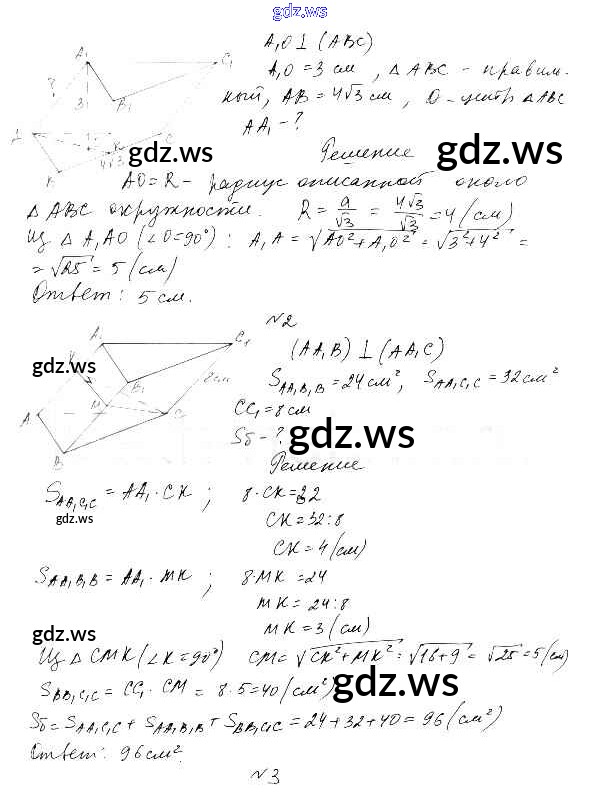 gdz.ws
A₁O ⊥ (ABC)
A₁O = 3 см, △ ABC - правиль-
ный, AB = 4√3 см, O - центр △ABC
AA₁ - ?
gdz.ws
gdz.ws
Решение
AO = R - радиус описанной около
△ ABC окружности. R = a/√3 = 4√3/√3 = 4 (см)
Из △ A₁AO (∠O = 90°): A₁A = √AO² + A₁O² = √3² + 4² =
= √25 = 5 (см)
Ответ: 5 см.
№2
(AA₁B) ⊥ (AA₁C)
gdz.ws
S AA₁B₁B = 24 см², S AA₁C₁C = 32 см²
CC₁ = 8 см
Sб - ?
gdz.ws
Решение
S AA₁C₁C = AA₁ · CK ; 8 · CK = 32
gdz.ws
gdz.ws
CK = 32 : 8
CK = 4 (см)
S AA₁B₁B = AA₁ · MK ; 8 · MK = 24
MK = 24 : 8
gdz.ws
MK = 3 (см)
Из △ CMK (∠K = 90°) CM = √CK² + MK² = √16 + 9 = √25 = 5 (см)
S BB₁C₁C = CC₁ · CM = 8 · 5 = 40 (см²)
gdz.ws
Sб = S AA₁C₁C + S AA₁B₁B + S BB₁C₁C = 24 + 32 + 40 = 96 (см²)
Ответ: 96 см².
№3